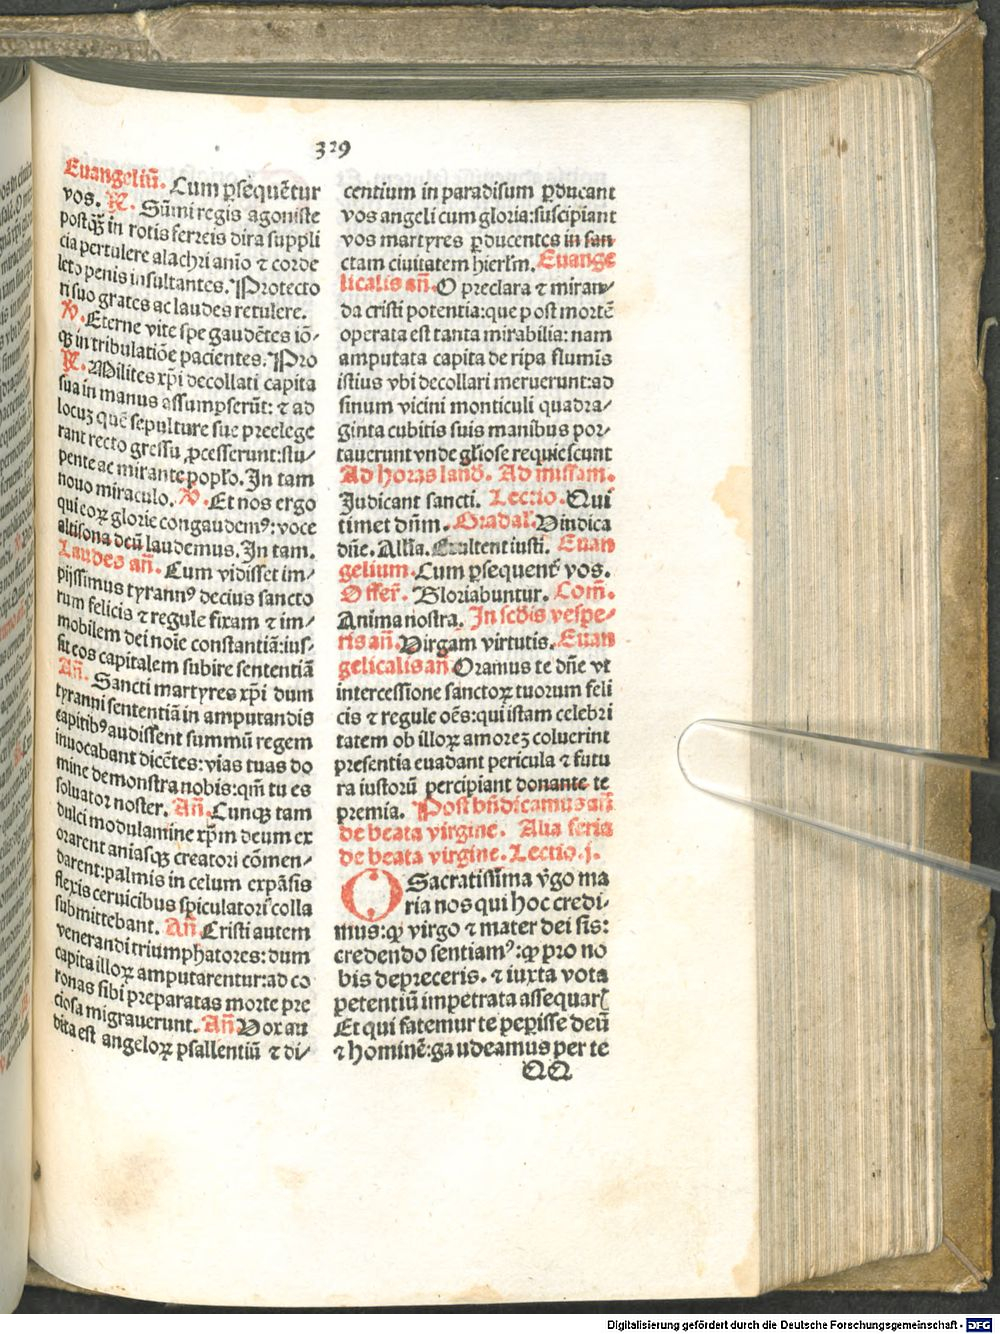 329
Euangeliū. Cum ꝑsequētur
vos. ℟. Sūmi regis agoniste
postqȝ̄ in rotis ferreis dira suppli
cia pertulere alachri anīo ⁊ corde
leto penis insultantes. Protecto
ri suo grates ac laudes retulere.
℣. Eterne vite spe gaudētes iō/
qȝ in tribulatiōe pacientes. Pro
℟. Milites xp̄i decollati capita
sua in manus assumpserūt: ⁊ ad
locuȝ quē sepulture sue preelege
rant recto gressu ꝓcesserunt: stu/
pente ac mirante pop̄lo. In tam
nouo miraculo. ℣. Et nos ergo
qui eoꝝ glorie congaudemꝰ: voce
altisona deū laudemus. In tam.
Laudes an̄. Cum vidisset im/
pijssimus tyrannꝰ decius sancto
rum felicis ⁊ regule fixam ⁊ im/
mobilem dei noīe constantiā: ius/
sit eos capitalem subire sententiā
An̄. Sancti martyres xp̄i dum
tyranni sententiā in amputandis
capitibꝰ audissent summū regem
inuocabant dicētes: vias tuas do
mine demonstra nobis: qm̄ tu es
saluator noster. An̄. Cunqȝ tam
dulci modulamine xp̄m deum ex
orarent aniasqȝ creatori cōmen/
darent: palmis in celum expāsis
flexis ceruicibus spiculatori colla
submittebant. An̄. Cristi autem
venerandi triumphatores: dum
capita illoꝝ amputarentur: ad co
ronas sibi preparatas morte pre
ciosa migrauerunt. An̄ Vox au
dita est angeloꝝ psallentiū ⁊ di/
centium in paradisum ꝑducant
vos angeli cum gloria: suscipiant
vos martyres ꝑducentes in san
ctam ciuitatem hierlm̄. Euange
licalis an̄. O preclara ⁊ miran/
da cristi potentia: que post mortē
operata est tanta mirabilia: nam
amputata capita de ripa flumīs
istius vbi decollari meruerunt: ad
sinum vicini monticuli quadra/
ginta cubitis suis manibus por/
tauerunt vnde gliose requiescunt
Ad horas laud̄. Ad missam.
Judicant sancti. Lectio. Qui
timet dn̄m. Gradal̄. Vindica
dn̄e. All̄a. Exultent iusti. Euan
gelium. Cum ꝑsequent᷑ vos.
Offer̄. Gloriabuntur. Com̄.
Anima nostra. In scd̄is vespe/
ris an̄. Virgam virtutis. Euan
gelicalis an̄ Oramus te dn̄e vt
intercessione sanctoꝝ tuorum feli
cis ⁊ regule oēs: qui istam celebri
tatem ob illoꝝ amoreȝ coluerint
presentia euadant pericula ⁊ futu
ra iustorū percipiant donante te
premia. Post bn̄dicamus an̄
de beata virgine. Alia feria
de beata virgine. Lectio. j.
O Sacratissima v̄go ma
ria nos qui hoc credi-
mus: ꝙ virgo ⁊ mater dei sis:
credendo sentiamꝰ: ꝙ pro no
bis depreceris. ⁊ iuxta vota
petentiū impetrata assequar᷑
Et qui fatemur te peꝑisse deū
⁊ hominē: gaudeamus per te
QQ
Digitalisierung gefördert durch die Deutsche Forschungsgemeinschaft - DFG